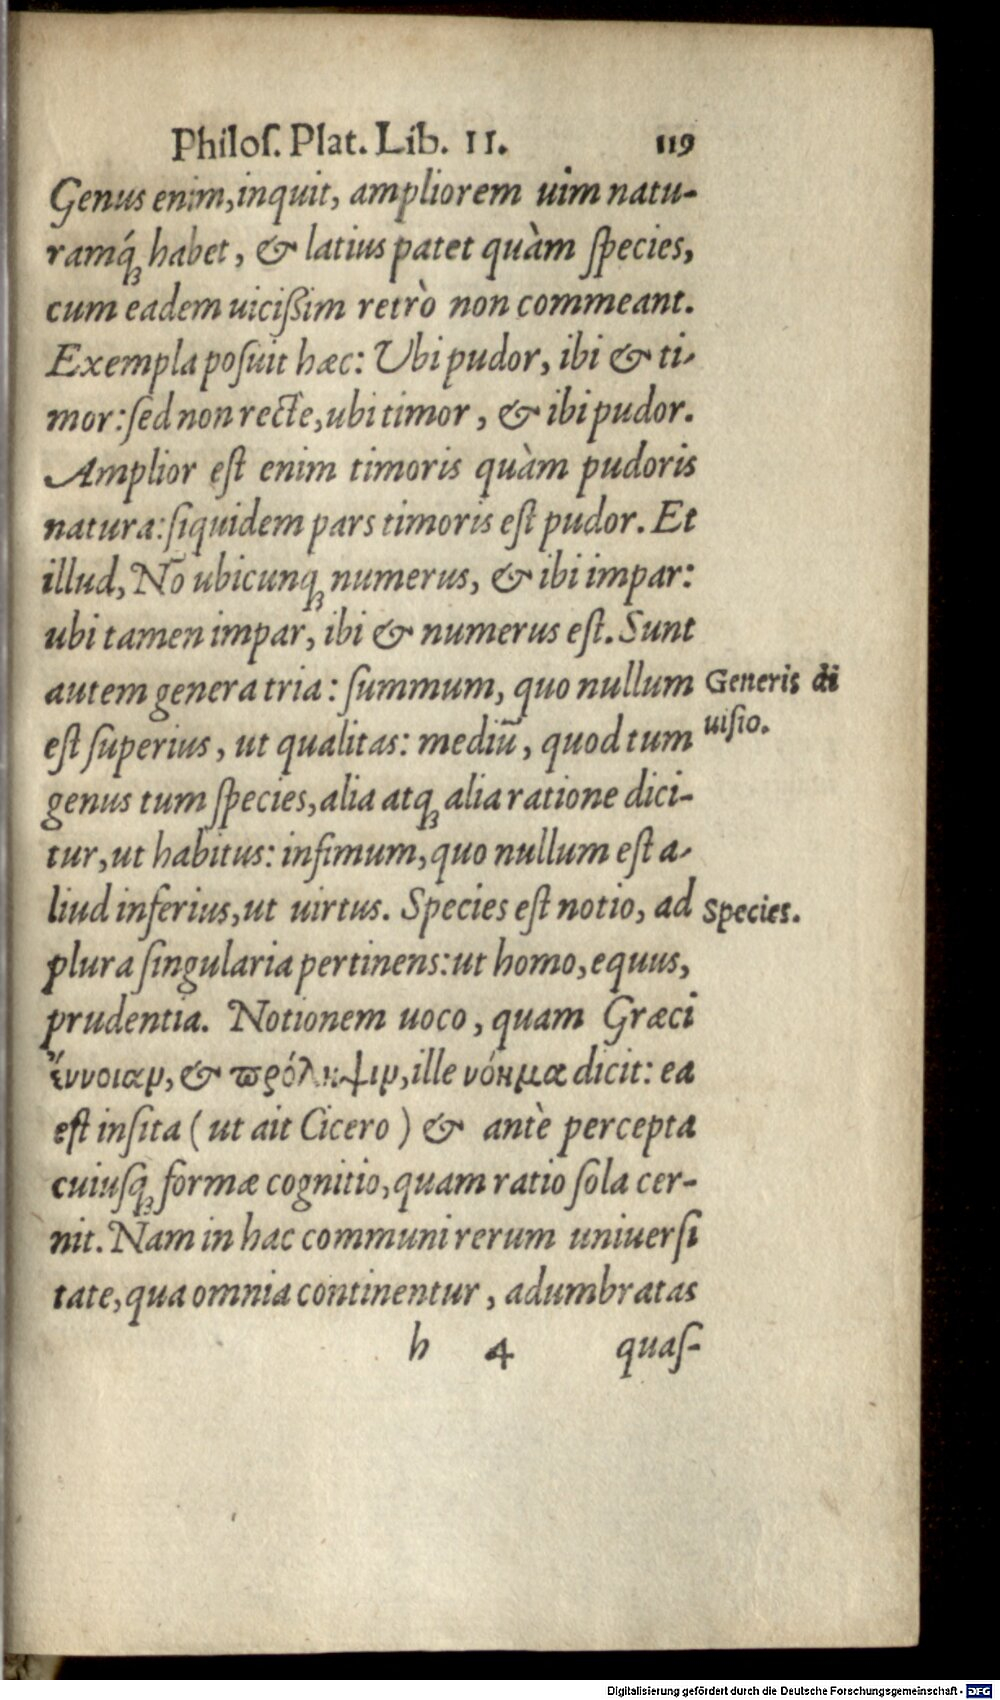 Philoſ. Plat. Lib. II. 119
Genus enim, inquit, ampliorem uim natu-
ramq́ꝫ habet, & latius patet quàm ſpecies,
cum eadem uicißim retrò non commeant.
Exempla poſuit hæc: Ubi pudor, ibi & ti-
mor: ſed non recte, ubi timor, & ibi pudor.
Amplior eſt enim timoris quàm pudoris
natura: ſiquidem pars timoris eſt pudor. Et
illud, Nō ubicunqꝫ numerus, & ibi impar:
ubi tamen impar, ibi & numerus eſt. Sunt
autem genera tria: ſummum, quo nullum
Generis di
uiſio.
eſt ſuperius, ut qualitas: mediū, quod tum
genus tum ſpecies, alia atqꝫ alia ratione dici-
tur, ut habitus: infimum, quo nullum eſt a-
liud inferius, ut uirtus. Species eſt notio, ad
Species.
plura ſingularia pertinens: ut homo, equus,
prudentia. Notionem uoco, quam Græci
ἔννοιαν, & πρόληψιν, ille νόημα dicit: ea
eſt inſita ( ut ait Cicero ) & antè percepta
cuiuſqꝫ formæ cognitio, quam ratio ſola cer-
nit. Nam in hac communi rerum uniuerſi
tate, qua omnia continentur, adumbratas
h 4 quaſ-
Digitalisierung gefördert durch die Deutsche Forschungsgemeinschaft - DFG